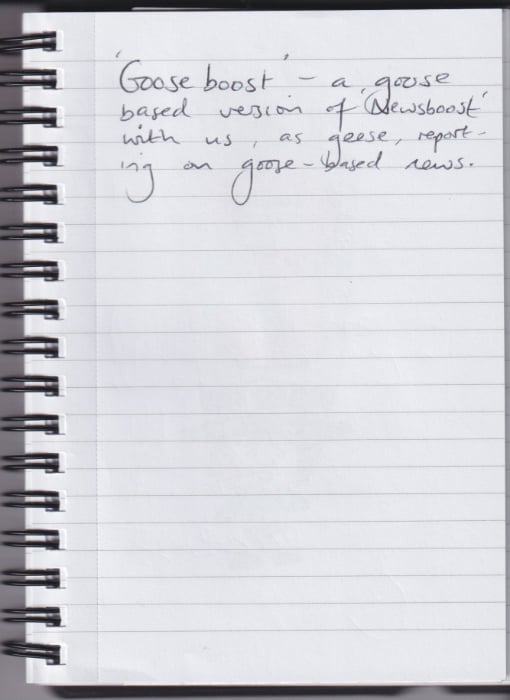 'Gooseboost' - a goose
based version of 'Newsboost'
with us, as geese, report-
ing on goose-based news.